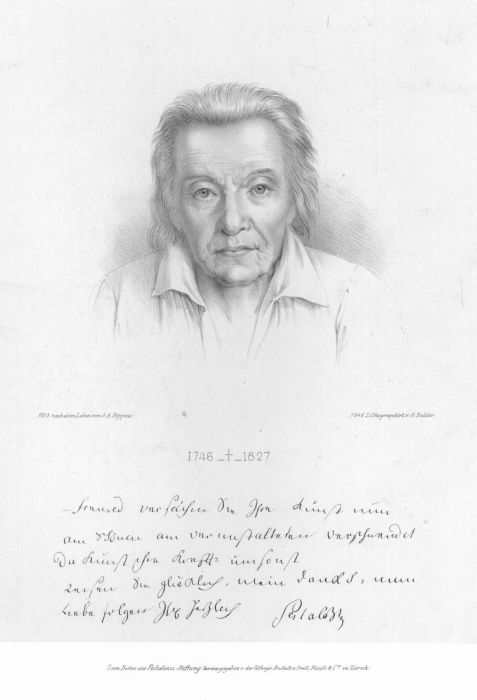 1818 nach dem Leben von G. A. Hippius
1846 Lithographirt v. G. Balder
1746 _†_ 1827
Freund Sie Ihre Kunst nun
am am verunstalteten verschwendet
Die Kunst ihre Kräfte umsonst
Reisen Sie glücklich, mein Dank &
Liebe folgen Ihnen herzlich Pestalozzi
Zum Besten der Pestalozzi-Stiftung herausgegeben v. der lithogr. Anstalt v. Orell, Füssli & Cie. in Zürich.